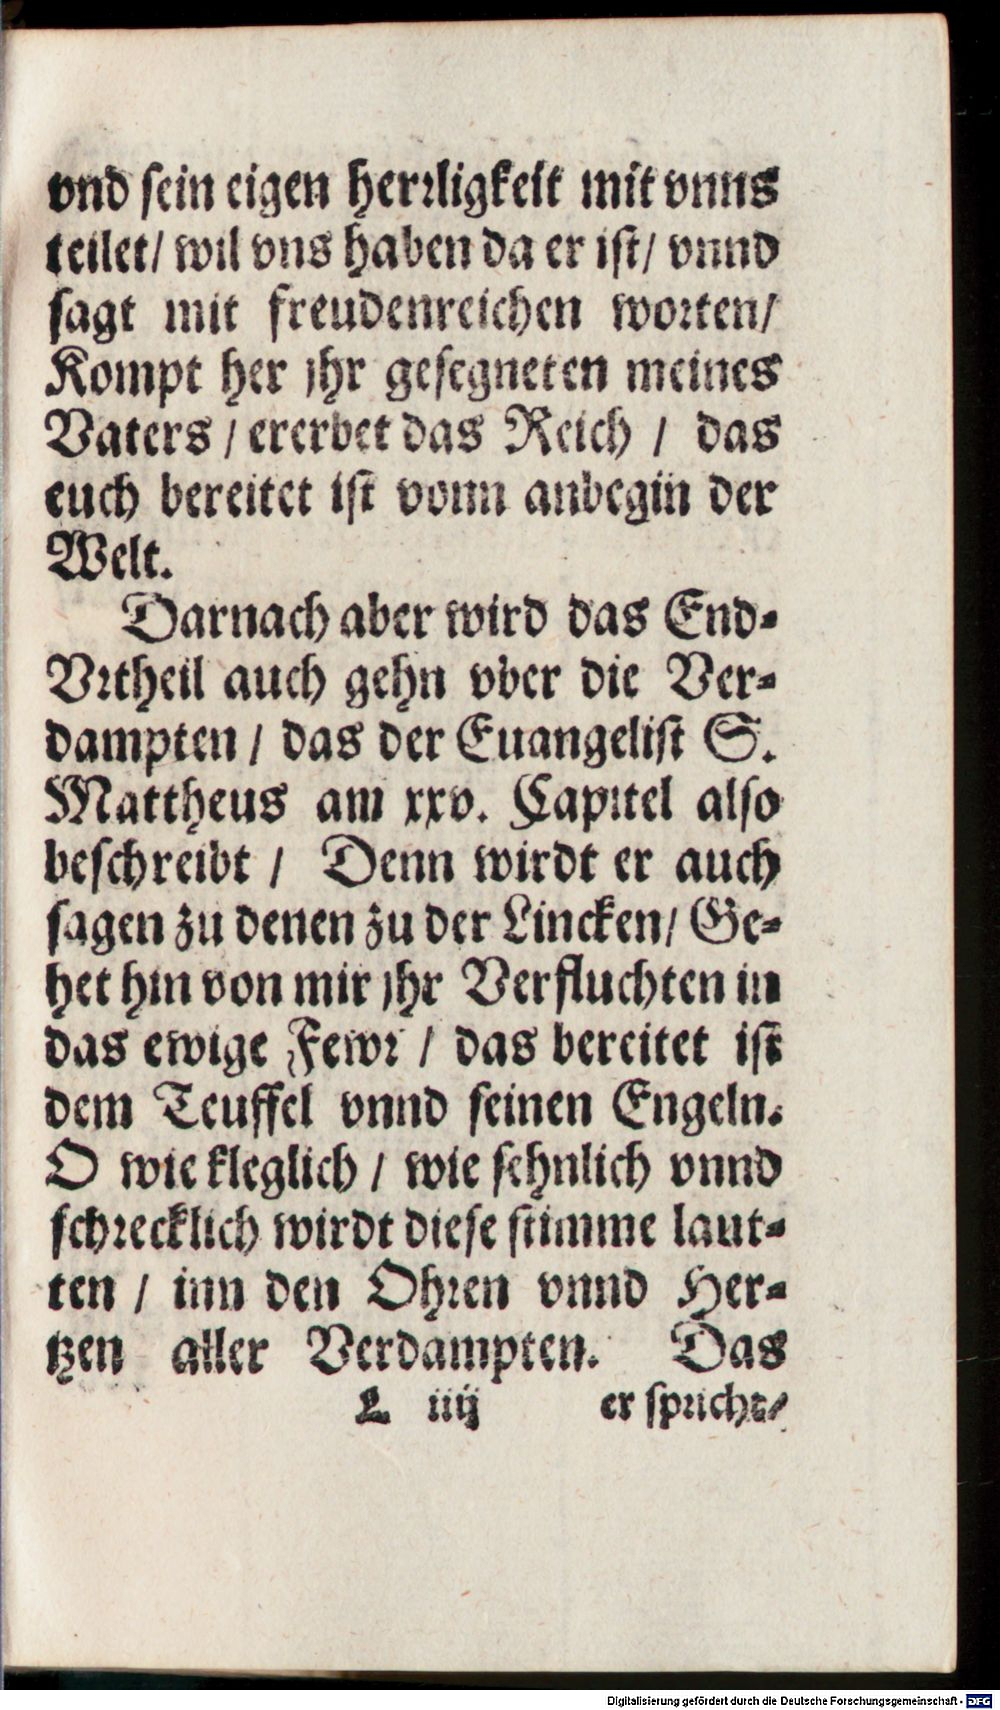 vnd sein eigen herrligkeit mit vnns
teilet/ wil vns haben da er ist/ vnnd
sagt mit freudenreichen worten/
Kompt her jhr gesegneten meines
Vaters / ererbet das Reich / das
euch bereitet ist vonn anbegin̄ der
Welt.
Darnach aber wird das End-
Vrtheil auch gehn vber die Ver-
dampten / das der Euangelist S.
Mattheus am xxv. Capitel also
beschreibt / Denn wirdt er auch
sagen zu denen zu der Lincken/ Ge-
het hin von mir jhr Verfluchten in
das ewige Fewr / das bereitet ist
dem Teuffel vnnd seinen Engeln.
O wie kleglich / wie sehnlich vnnd
schrecklich wirdt diese stimme laut-
ten / inn den Ohren vnnd Her-
tzen aller Verdampten. Das
L iiij er spricht/
Digitalisierung gefördert durch die Deutsche Forschungsgemeinschaft - DFG